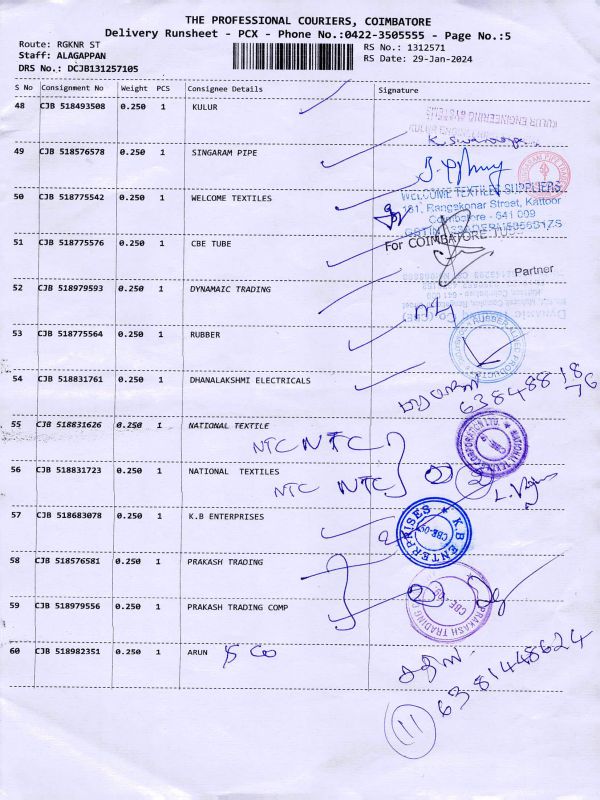 THE PROFESSIONAL COURIERS, COIMBATORE
Delivery Runsheet - PCX - Phone No.:0422-3505555 - Page No.:5
Route: RGKNR ST
RS No.: 1312571
Staff: ALAGAPPAN
RS Date: 29-Jan-2024
DRS No.: DCJB131257105
S No Consignment No Weight PCS Consignee Details Signature
48 CJB 518493508 0.250 1 KULUR
KULUR ENGINEERING SYSTEMS
49 CJB 518576578 0.250 1 SINGARAM PIPE
50 CJB 518775542 0.250 1 WELCOME TEXTILES
WELCOME TEXTILES SUPPLIERS
181, Rangakonar Street, Kattoor
Coimbatore - 641 009
51 CJB 518775576 0.250 1 CBE TUBE
For COIMBATORE
Partner
52 CJB 518979593 0.250 1 DYNAMAIC TRADING
53 CJB 518775564 0.250 1 RUBBER
54 CJB 518831761 0.250 1 DHANALAKSHMI ELECTRICALS
6384881876
55 CJB 518831626 0.250 1 NATIONAL TEXTILE
NTC NTC
56 CJB 518831723 0.250 1 NATIONAL TEXTILES
NTC NTC
2
57 CJB 518683078 0.250 1 K.B ENTERPRISES
K.B ENTERPRISES
58 CJB 518576581 0.250 1 PRAKASH TRADING
59 CJB 518979556 0.250 1 PRAKASH TRADING COMP
PRAKASH TRADING
60 CJB 518982351 0.250 1 ARUN & Co
6381448624
11